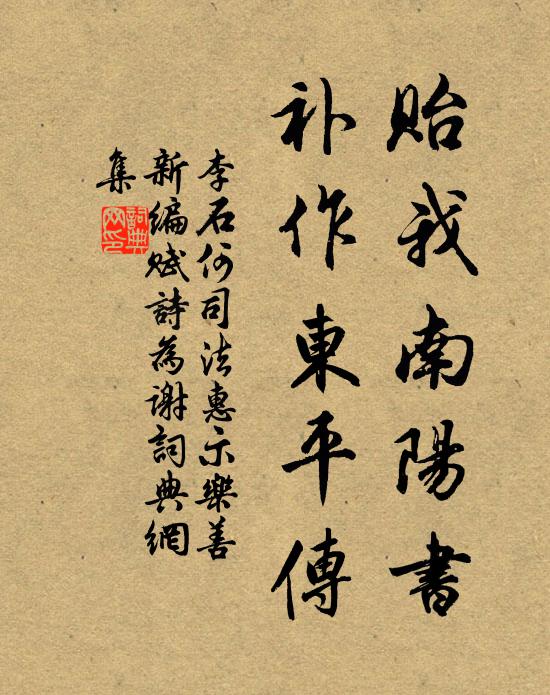 貽我南陽書
补作東平傳
李石何司法惠示樂善
新編賦詩為謝詞典網
集
詞典
网印